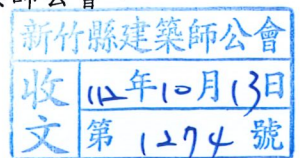 師公會
新竹縣建築師公會
收文
112年10月13日
第1274號